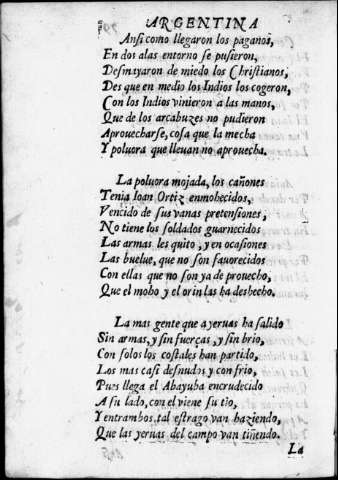 ARGENTINA
Ansi como llegaron los paganos,
En dos alas entorno se pusieron,
Desmayaron de miedo los Christianos,
Des que en medio los Indios los cogeron,
Con los Indios vinieron a las manos,
Que de los arcabuzes no pudieron
Aprouecharse, cosa que la mecha
Y poluora que lleuan no aprouecha.
La poluora mojada, los cañones
Tenia Ioan Ortiz enmohecidos,
Vencido de sus vanas pretensiones,
No tiene los soldados guarnecidos
Las armas les quito, y en ocasiones
Las buelue, que no son fauorecidos
Con ellas que no son ya de prouecho,
Que el moho y el orin las ha deshecho.
La mas gente que a yeruas ha salido
Sin armas, y sin fuerças, y sin brio,
Con solos los costales han partido,
Los mas casi desnudos y con frio,
Pues llega el Abayuba encrudecido
A su lado, con el viene su tio,
Y entrambos, tal estrago van haziendo,
Que las yeruas del campo van tiñendo.
La